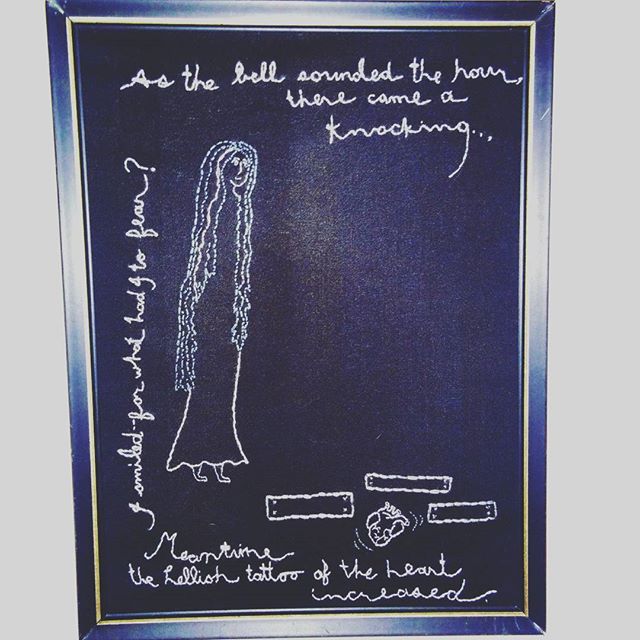 As the bell sounded the hour,
there came a
knocking...
I smiled-for what had I to fear?
Meantime
the hellish tattoo of the heart
increased.